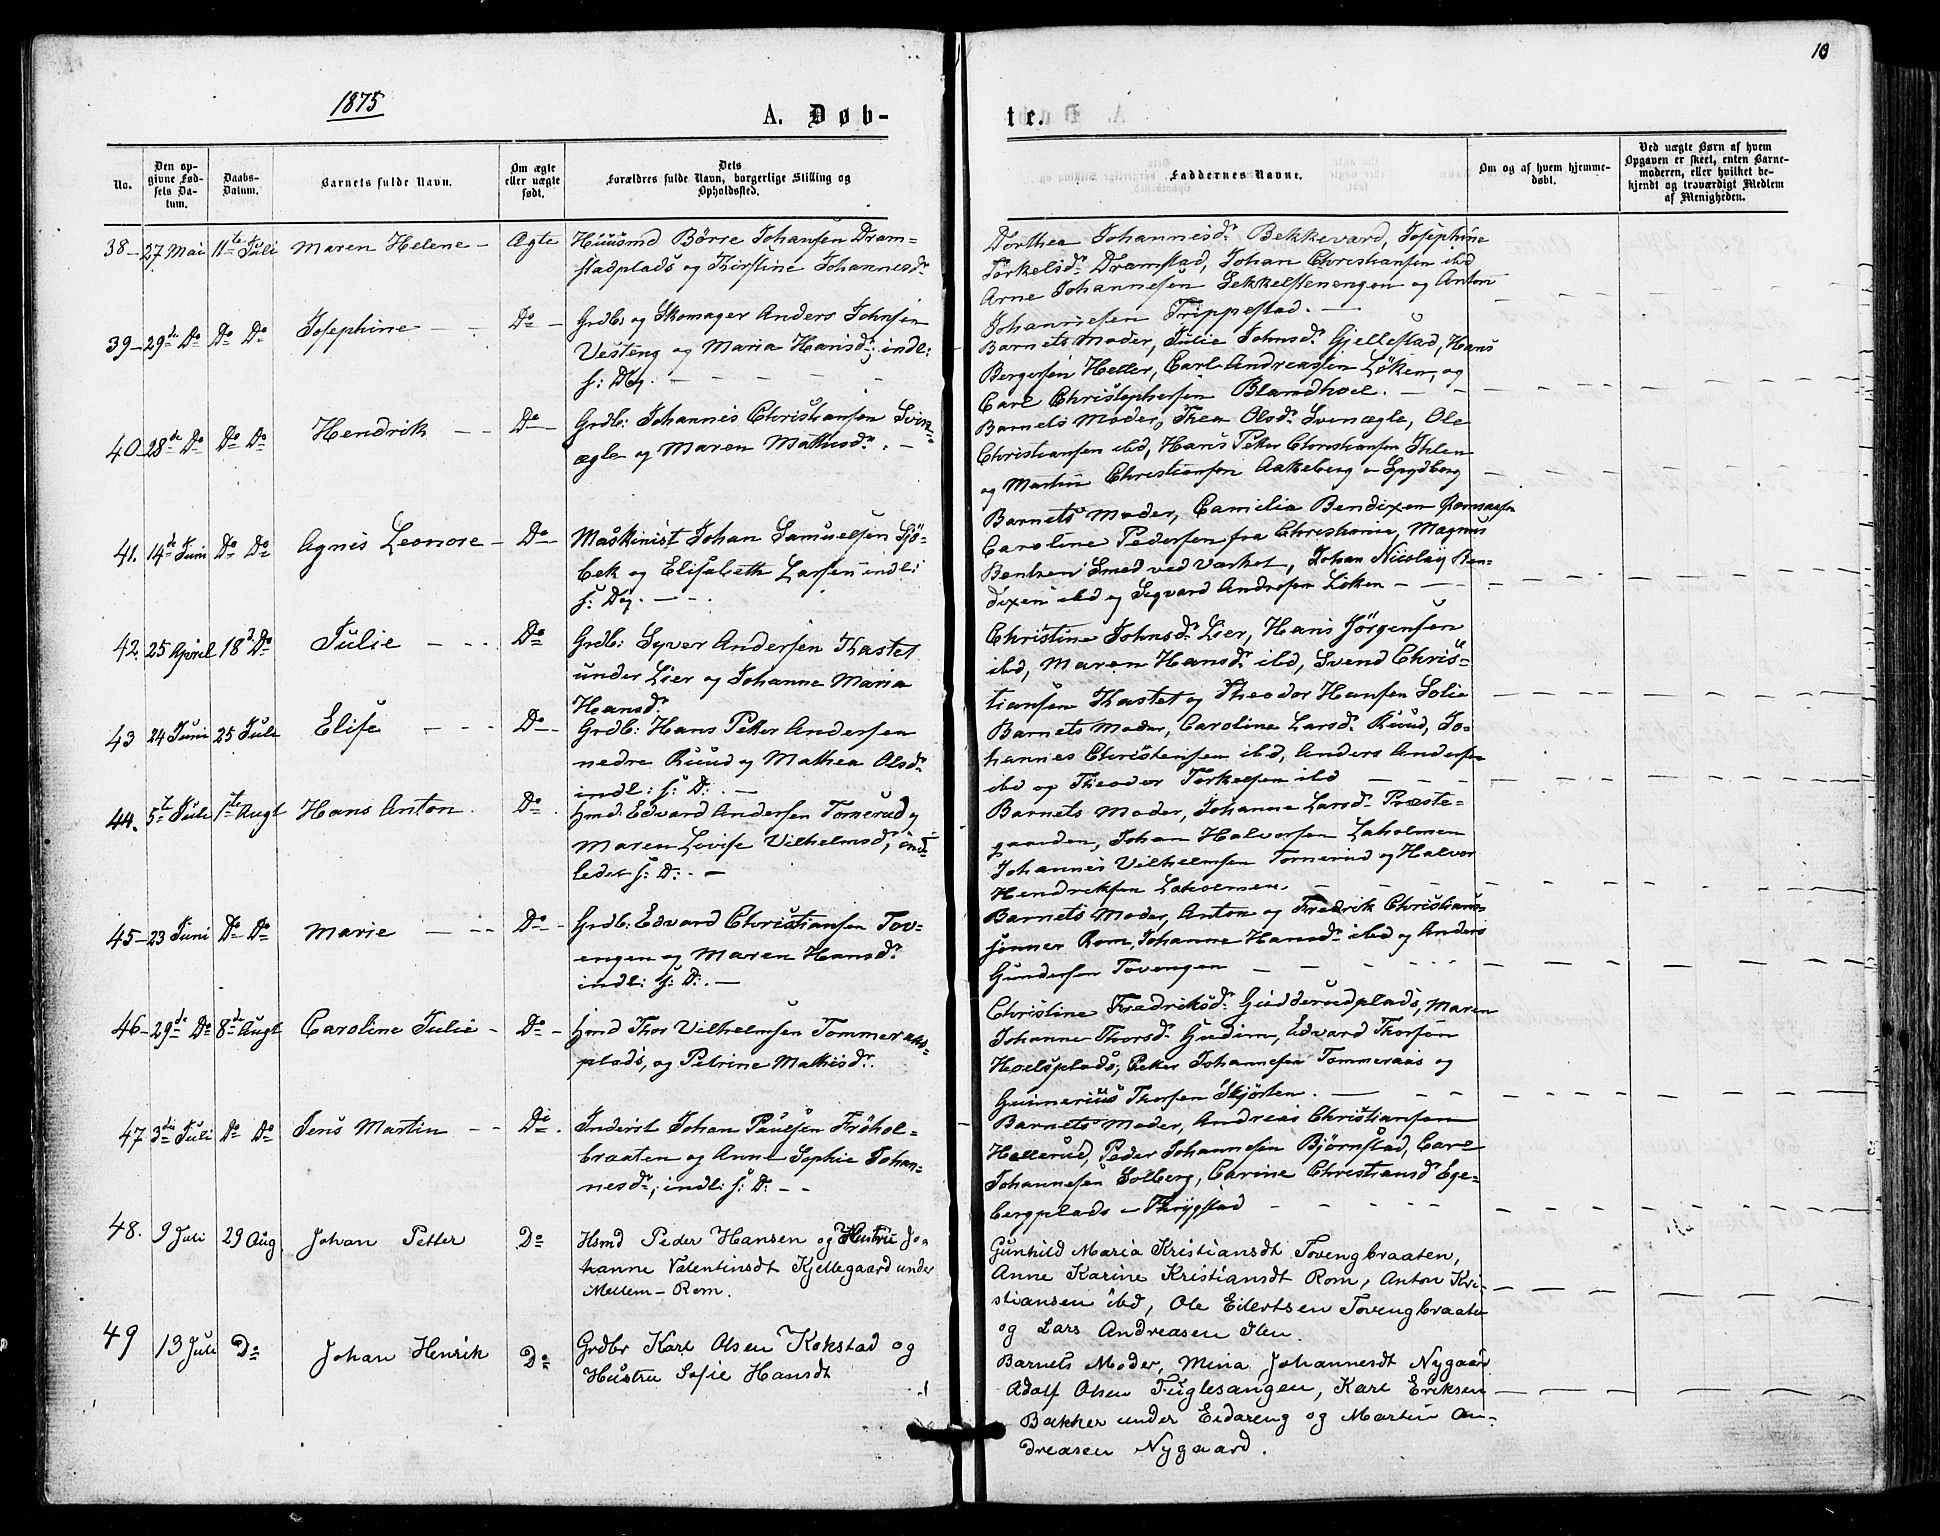 10
1875
A. Døb-
te.
No.
Den op-
givne Fød-
sels Da-
tum.
Daabs-
Datum.
Barnets fulde Navn.
Om ægte
eller uægte
født.
Dets
Forældres fulde Navn, borgerlige Stilling og
Opholdssted.
Faddernes Navne.
Om og af hvem hjemme-
døbt.
Ved uægte Børn af hvem
Opgaven er skeet, enten Barne-
moderen, eller hvilket be-
kjendt og troværdigt Medlem
af Menigheden.
38 – 27 Mai 11te Juli Maren Helene – Ægte Huusmd Börre Johansen Dram=
stadplads og Thirstine Johannesdr
Dorthea Johannesdr Bekkevard, Josephine
Torkelsdr Dramstad, Johan Christiansen ibd
Arne Johannesen Sekkelstenengen og Anton
Johannesen Trippestad. —
39 – 29de Do Do Do Josephine – – Do – Grdb: og Skomager Anders Johnsen
Vesteng og Maria Hansdr; indl:
s: Dg. – – – –
Barnets Moder, Julie Johnsdr Gjellestad, Hans
Bergersen Heller, Carl Andreasen Löken, og
Carl Christophersen Blandhoel. – –
40 28de Do Do Do Hendrik – – Do – Grdb: Johannes Christiansen Svin=
ægle og Maren Mathisdr. –
Barnets Moder, Thea Olsdr Svenægle, Ole
Christiansen ibd, Hans Peter Christiansen Ihlen
og Martin Christiansen Aakeberg – Spydberg
41. 14de Juni Do Do Agnis Leonore – Do – Maskinist Johan Samuelsen Sjö=
bek og Elisabeth Larsen indl:
s: Dg. – – .
Barnets Moder, Camilia Bendixen
Caroline Pedersen fra Christiania, Magnus
Bentzen Smed ved Værket, Johan Nicolay Ben=
dixen ibd og Segvard Andersen Löken – – –
42. 25 April 18de Do Julie – – . Do Grdb: Syver Andersen Thastet
under Lier og Johanne Maria
Hansdr
Christine Johnsdr Lier, Hans Jörgensen
ibd, Maren Hansdr ibd, Svend Chris=
tiansen Thastet og Theodor Hansen Solia
43 24 Juni 25 Juli Elise – – – Do – Grdb: Hans Peter Andersen
nedre Ruud og Mathea Olsdr
indl: s: D: . –
Barnets Moder, Caroline Larsdr Ruud, Jo=
hannes Christensen ibd, Anders Andersen
ibd og Theodor Torkelsen ibd – – – –
44. 5te Juli 1ste Augt Hans Anton. Do . Hmd: Edvard Andersen Tornerud og
Maren Lovise Vilhelmsdr, ind=
ledet s: D: . –
Barnets Moder, Johanne Larsdr Præste=
gaarden, Johan Halvorsen Laholmen
Johannes Vilhelmsen Tornerud og Halvor
Hendriksen Laholmen. – – – –
45 – 23 Juni Do Do Marie – – – Do – Grdb: Edvard Christiansen Tov=
engen og Maren Hansdr
indl: s: D: . –
Barnets Moder, Anton og Fredrik Christians=
sönner Rom, Johanne Hansdr ibd og Anders
Gundersen Tovengen – – – –
46 – 29de Do 8de Augt Caroline Julie – Do – Hmd Thor Vilhelmsen Tommeraas=
plads, og Petrine Mathisdr.
Christine Fredriksdr Gudderudplads, Maren
Johanne Thorsdr Gudim, Edvard Thorsen
Hoelsplads, Peter Johannesen Tommeraas og
Gunnerius Thorsen Skjörten. – – –
47 3die Juli Do Do Jens Martin – – Do . Inderst Johan Paulsen Fröhol=
braaten og Anne Sophie Johan=
nesdr, indl: s: D: – –
Barnets Moder, Andreas Christiansen
Hellerud, Peder Johannesen Björnstad, Carl
Johannesen Solberg, Carine Christiansdr Ege=
bergplads – Thrygstad – – – –
48. 9 Juli 29 Aug Johan Petter Do Hsmd Peder Hansen og Hustru Jo-
hanne Valentinsdt Kjellegaard under
Mellem – Rom.
Gunhild Maria Kristiansdt Tovengbraaten,
Anne Karine Kristiansdt Rom, Anton Kri-
stiansen ibd, Ole Eilertsen Tovengbraaten
og Lars Andreasen Ilen.
49 13 Juli Do Johan Henrik Do Grdbr Karl Olsen Kokstad og
Hustru Sofie Hansdt
Barnets Moder, Mina Johannesdt Nygaard
Adolf Olsen Fuglesangen, Karl Eriksen
Bakker under Eidareng og Martin An-
dreasen Nygaard.